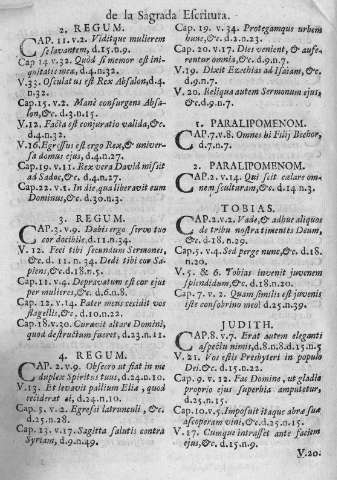 de la Sagrada Escritura.
2. REGUM.
CAP. 11. v. 2. Viditque mulierem
se lavantem, d.15.n.9.
Cap 14. v. 32. Quod si memor est ini-
quitatis meæ, d.4.n.32.
V. 33. Osculatus est Rex Absalon, d.4.
n.32.
Cap. 15. v. 2. Manè consurgens Absa-
lon, &c. d.3.n.15.
V. 12. Facta est conjuratio valida, &c.
d.4.n.32.
V. 16. Egressus est ergo Rex, & univer-
sa domus ejus, d.4.n.27.
Cap. 19. v. 11. Rex vero David missit
ad Sadoc, &c. d.4.n.27.
Cap. 22. v. 1. In die qua liberavit eum
Dominus, &c. d.30.n.3.
3. REGUM.
CAP. 3. v. 9. Dabis ergo servo tuo
cor docibile, d.11.n.34.
V. 12. Feci tibi secundum Sermones,
&c. d. 11. n. 34. Dedi tibi cor Sa-
piens, &c. d.18.n.5.
Cap. 11. v. 4. Depravatum est cor ejus
per mulieres, &c. d.6.n.8.
Cap. 12. v. 14. Pater meus cecidit vos
flagellis, &c. d.10.n.22.
Cap. 18. v. 30. Curavit altare Domini,
quod destructum fuerat, d.23.n.11.
4. REGUM.
CAP. 2. v. 9. Obsecro ut fiat in me
duplex Spiritus tuus, d.24.n.10.
V. 13. Et levavit pallium Eliæ, quod
ceciderat ei, d.24.n.10.
Cap. 5. v. 2. Egressi latrunculi, &c.
d.25.n.28.
Cap. 13. v. 17. Sagitta salutis contra
Syriam, d.9.n.49.
Cap. 19. v. 34. Protegamque urbem
hanc, &c. d.2.n.23.
Cap. 20. v. 17. Dies venient, & aufe-
rentur omnia, &c. d.9.n.7.
V. 19. Dixit Ezechias ad Isaiam, &c.
d.9.n.7.
V. 20. Reliqua autem Sermonum ejus,
&c. d.9.n.7.
1. PARALIPOMENOM.
CAP. 7. v. 8. Omnes hi Filij Bechor,
d.7.n.7.
2. PARALIPOMENOM.
CAP. 2. v. 14. Qui scit cælare om-
nem sculturam, &c. d.14.n.3.
TOBIAS.
CAP. 2. v. 2. Vade, & adhuc aliquos
de tribu nostra timentes Deum,
&c. d.18.n.29.
Cap. 5. v. 4. Sed perge nunc, &c. d.18.
n.20.
V. 5. & 6. Tobias invenit juvenem
splendidum, &c. d.18.n.20.
Cap. 7. v. 2. Quam similis est juvenis
iste consobrino meo! d.25.n.39.
JUDITH.
CAP. 8. v. 7. Erat autem eleganti
aspectu nimis, d.8.n.8. d.15.n.5
V. 21. Vos estis Presbyteri in populo
Dei, &c. d.15.n.22.
Cap. 9. v. 12. Fac Domine, ut gladio
proprio ejus superbia amputetur,
d.25.n.15.
Cap. 10. v. 5. Imposuit itaque abræ suæ
ascoperam vini, &c. d.25.n.15.
V. 17. Cumque intrasset ante faciem
ejus, &c. d.15.n.9.
V. 20.